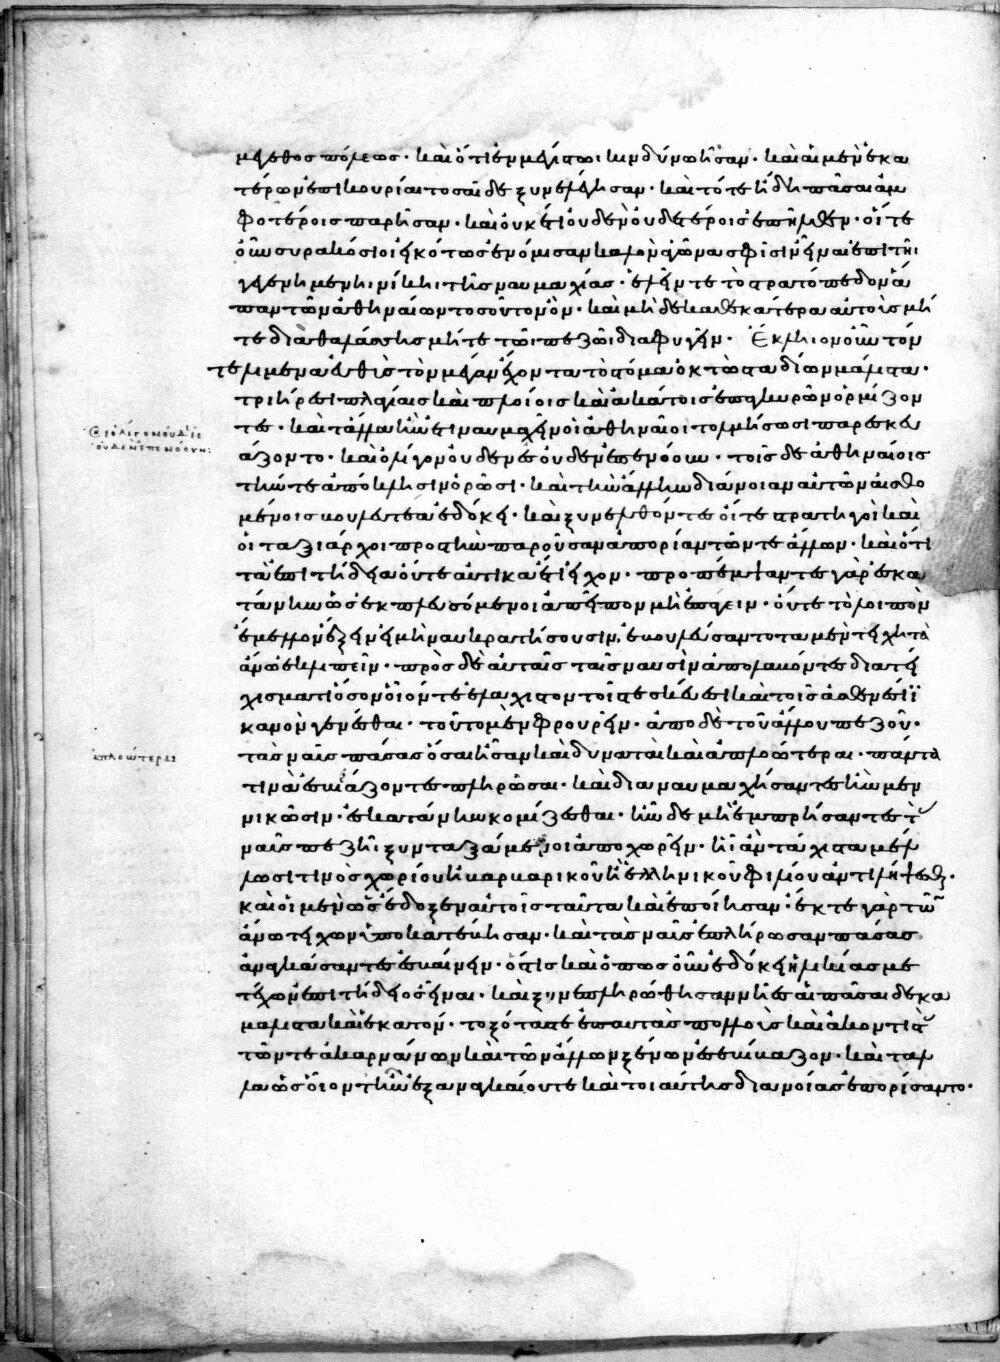 μέγεθος πόλεως· καὶ ὅτι ἐν μεγίστωι κινδύνωι ἦσαν· καὶ αἱ μὲν ἑκα
τέρων ἐπικουρίαι τοσαίδε ξυνελέγησαν· καὶ τότε ἤδη πᾶσαι ἀμ
φοτέροις παρῆσαν· καὶ οὐκέτι οὐδὲν οὐδετέροις ἐπῆλθεν· οἵ τε
οὖν συρακόσιοι εἰκότως ἐνόμισαν καλὸν ἀγῶνα σφίσιν εἶναι ἐπὶ τῆι
γεγενημένηι νίκηι τῆς ναυμαχίας· ἑλεῖν τε τὸ στρατόπεδον ἅ
παν τῶν ἀθηναίων τοσοῦτον ὄν· καὶ μηδὲ καθ᾽ ἑκάτερα αὐτοὺς μή
τε διὰ θαλάσσης μήτε τῶι πεζῶι διαφυγεῖν· Ἔκληιον οὖν τόν
τε λιμένα εὐθὺς τὸν μέγαν ἔχοντα τὸ στόμα ὀκτὼ σταδίων μάλιστα·
τριήρεσι πλαγίαις καὶ πλοίοις καὶ ἀκάτοις ἐπ᾽ ἀγκυρῶν ὁρμίζον
τες· καὶ τἄλλα ἢν ἔτι ναυμαχεῖν οἱ ἀθηναῖοι τολμήσωσι παρεσκευ
άζοντο· καὶ ὀλίγον οὐδὲν ἐς οὐδὲν ἐπενόουν· τοῖς δὲ ἀθηναίοις
τήν τε ἀπόκλησιν ὁρῶσι· καὶ τὴν ἄλλην διάνοιαν αὐτῶν αἰσθο
μένοις βουλευτέα ἐδόκει· καὶ ξυνελθόντες οἵ τε στρατηγοὶ καὶ
οἱ ταξίαρχοι πρὸς τὴν παροῦσαν ἀπορίαν τῶν τε ἄλλων· καὶ ὅτι
τὰ ἐπιτήδεια οὔτε αὐτίκα ἔτι εἶχον· προπέμψαντες γὰρ ἐς κα
τάνην ὡς ἐκπλευσόμενοι ἀπεῖπον μὴ ἐπάγειν· οὔτε τὸ λοιπὸν
ἔμελλον ἕξειν εἰ μὴ ναυκρατήσουσιν, ἐβουλεύσαντο τὰ μὲν τείχη τὰ
ἄνω ἐκλιπεῖν· πρὸς δὲ αὐταῖς ταῖς ναυσὶν ἀπολαβόντες διατει
χίσματι ὅσον οἷόν τε ἐλάχιστον τοῖς τε σκεύεσι καὶ τοῖς ἀσθενέσιν ἱ
κανὸν γενέσθαι· τοῦτο μὲν φρουρεῖν· ἀπὸ δὲ τοῦ ἄλλου πεζοῦ·
τὰς ναῦς πάσας ὅσαι ἦσαν καὶ δυναταὶ καὶ ἀπλοώτεραι· πάντα
τινὰ ἐσβιβάζοντες πληρῶσαι· καὶ διαναυμαχήσαντες ἢν μὲν
νικῶσιν· ἐς κατάνην κομίζεσθαι· ἢν δὲ μὴ ἐμπρήσαντες τὰς
ναῦς πεζῆι ξυνταξάμενοι ἀποχωρεῖν· ἧι ἂν τάχιστα μέλ
λωσί τινος χωρίου ἢ βαρβαρικοῦ ἢ ἑλληνικοῦ φιλίου ἀντιλήψεσθαι.
καὶ οἱ μὲν ὡς ἔδοξεν αὐτοῖς ταῦτα καὶ ἐποίησαν· ἔκ τε γὰρ τῶν
ἄνω τειχῶν ὑποκατέβησαν· καὶ τὰς ναῦς ἐπλήρωσαν πάσας
ἀναγκάσαντες ἐσβαίνειν· ὅστις καὶ ὁπωσοῦν ἐδόκει ἡλικίας με
τέχων ἐπιτήδειος εἶναι· καὶ ξυνεπληρώθησαν νῆες αἱ πᾶσαι δέκα
μάλιστα καὶ ἑκατόν· τοξότας τε ἐπ᾽ αὐτὰς πολλοὺς καὶ ἀκοντιστὰς
τῶν τε ἀκαρνάνων καὶ τῶν ἄλλων ξένων ἐσεβίβαζον· καὶ τἄλ
λα ὡς οἷόν τ᾽ ἦν ἐξ ἀναγκαίου τε καὶ τοιαύτης διανοίας ἐπορίσαντο·
ὀλίγον οὐδὲν ἐς
οὐδὲν ἐπενόουν:
ἀπλοώτεραι